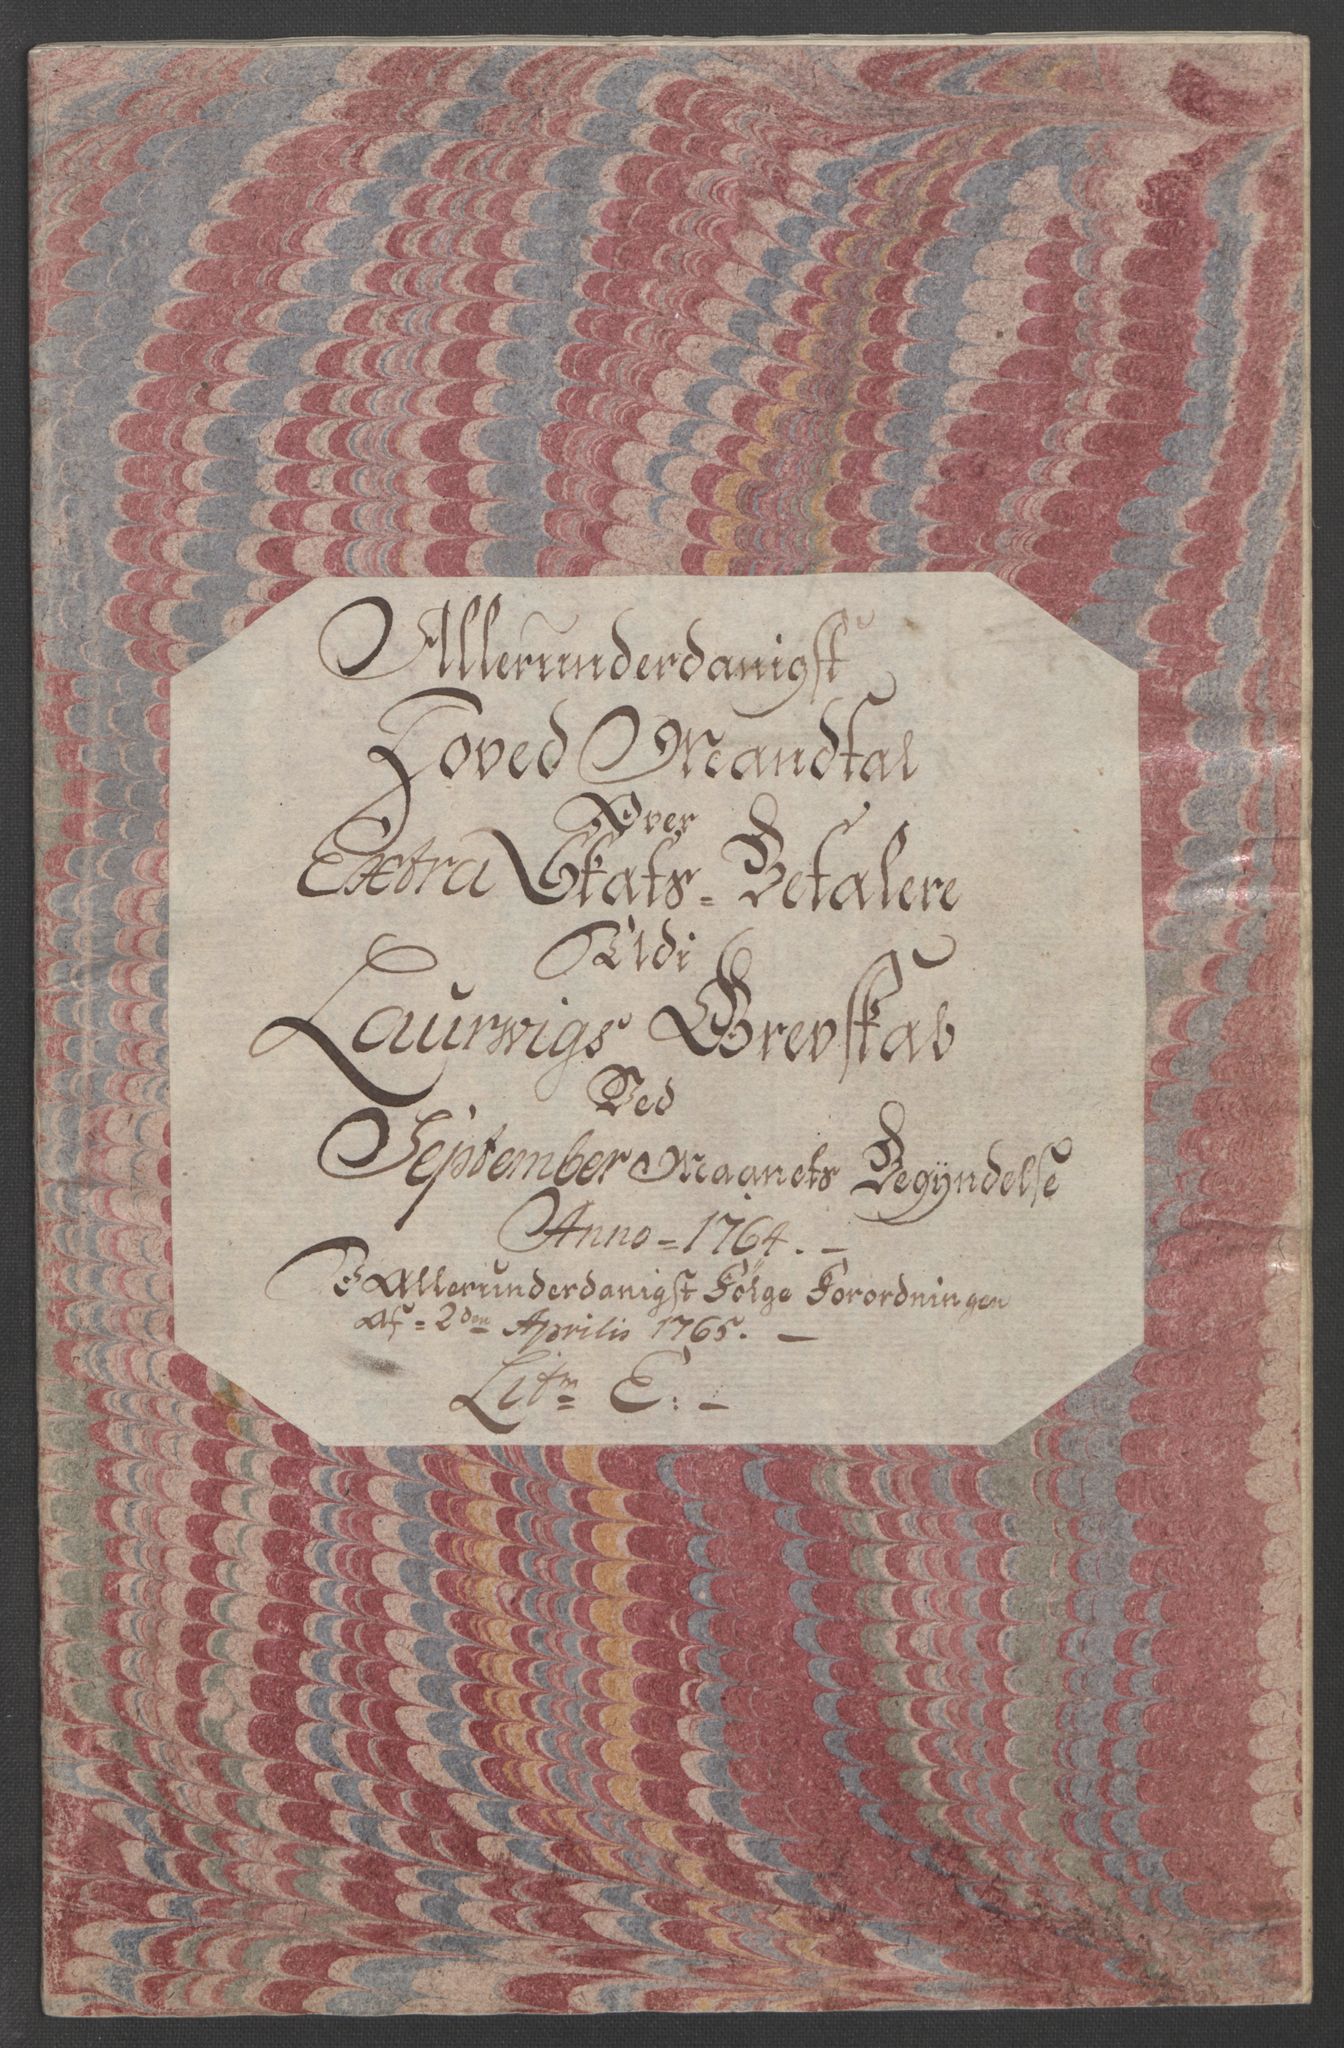 Allerunderdanigst
Hoved Mandtal
Over
Extra Skats= Betalere
Udi
Laurwigs Grevskab
Ved
September Maanets Begÿndelse
Anno = 1764. —
I Allerunderdanigst Følge Forordningen
af = 2den Aprilis 1765. —
Litra E: —